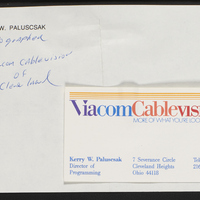 W. PALUSCSAK
Cablevision
of
Cleveland
ViacomCablevis
MORE OF WHAT YOU'RE LOO
Kerry W. Paluscsak
Director of
Programming
7 Severance Circle
Cleveland Heights
Ohio 44118
Tel
216